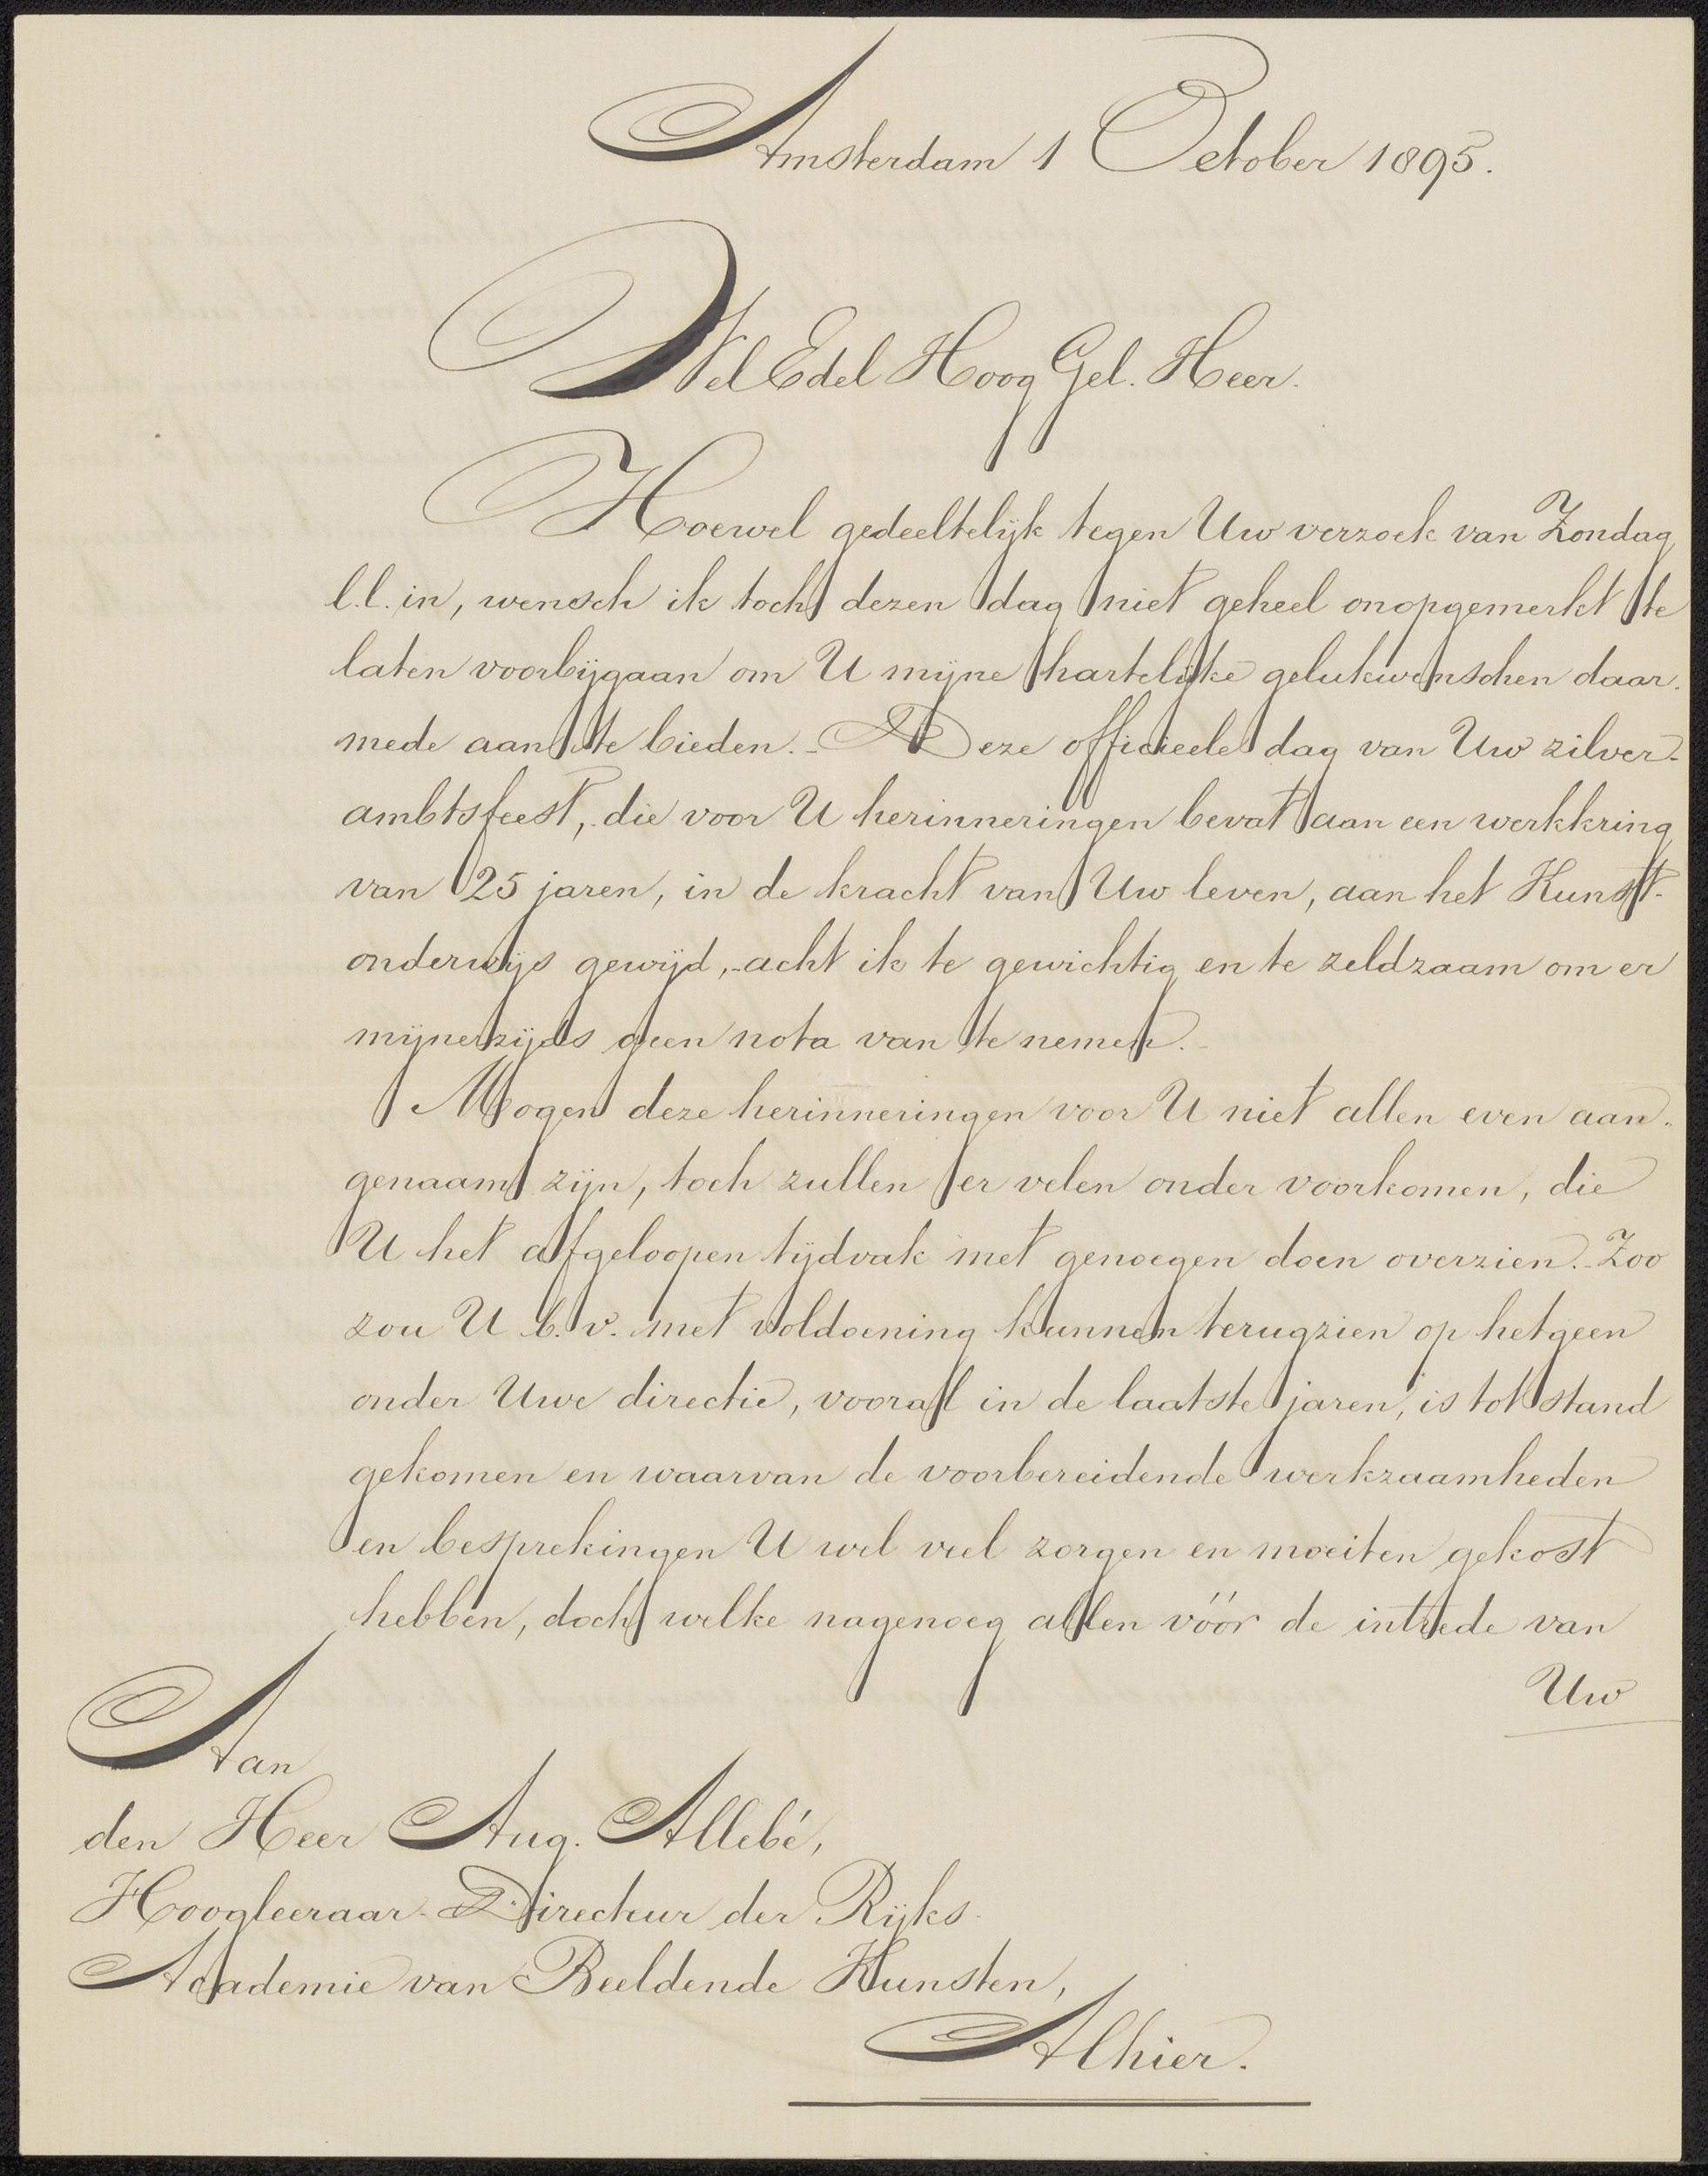 Amsterdam 1 October 1895.
WelEdel Hoog Gel. Heer.
Hoewel gedeeltelijk tegen Uw verzoek van Zondag
l.l. in, wensch ik toch dezen dag niet geheel onopgemerkt te
laten voorbijgaan om U mijne hartelijke gelukwenschen daar-
mede aan te bieden. - Deze officieele dag van Uw zilver-
ambtsfeest, die voor U herinneringen bevat aan een werkkring
van 25 jaren, in de kracht van Uw leven, aan het Kunst-
onderwijs gewijd, - acht ik te gewichtig en te zeldzaam om er
mijnerzijds geen nota van te nemen. -
Mogen deze herinneringen voor U niet allen even aan-
genaam zijn, toch zullen er velen onder voorkomen, die
U het afgeloopen tijdvak met genoegen doen overzien. - Zoo
zou U b.v. met voldoening kunnen terugzien op hetgeen
onder Uwe directie, vooral in de laatste jaren, is tot stand
gekomen en waarvan de voorbereidende werkzaamheden
en besprekingen U wel veel zorgen en moeiten gekost
hebben, doch welke nagenoeg allen vóór de intrede van
Uw
Aan
den Heer Aug. Allebé,
Hoogleeraar-Directeur der Rijks-
Academie van Beeldende Kunsten,
Alhier.